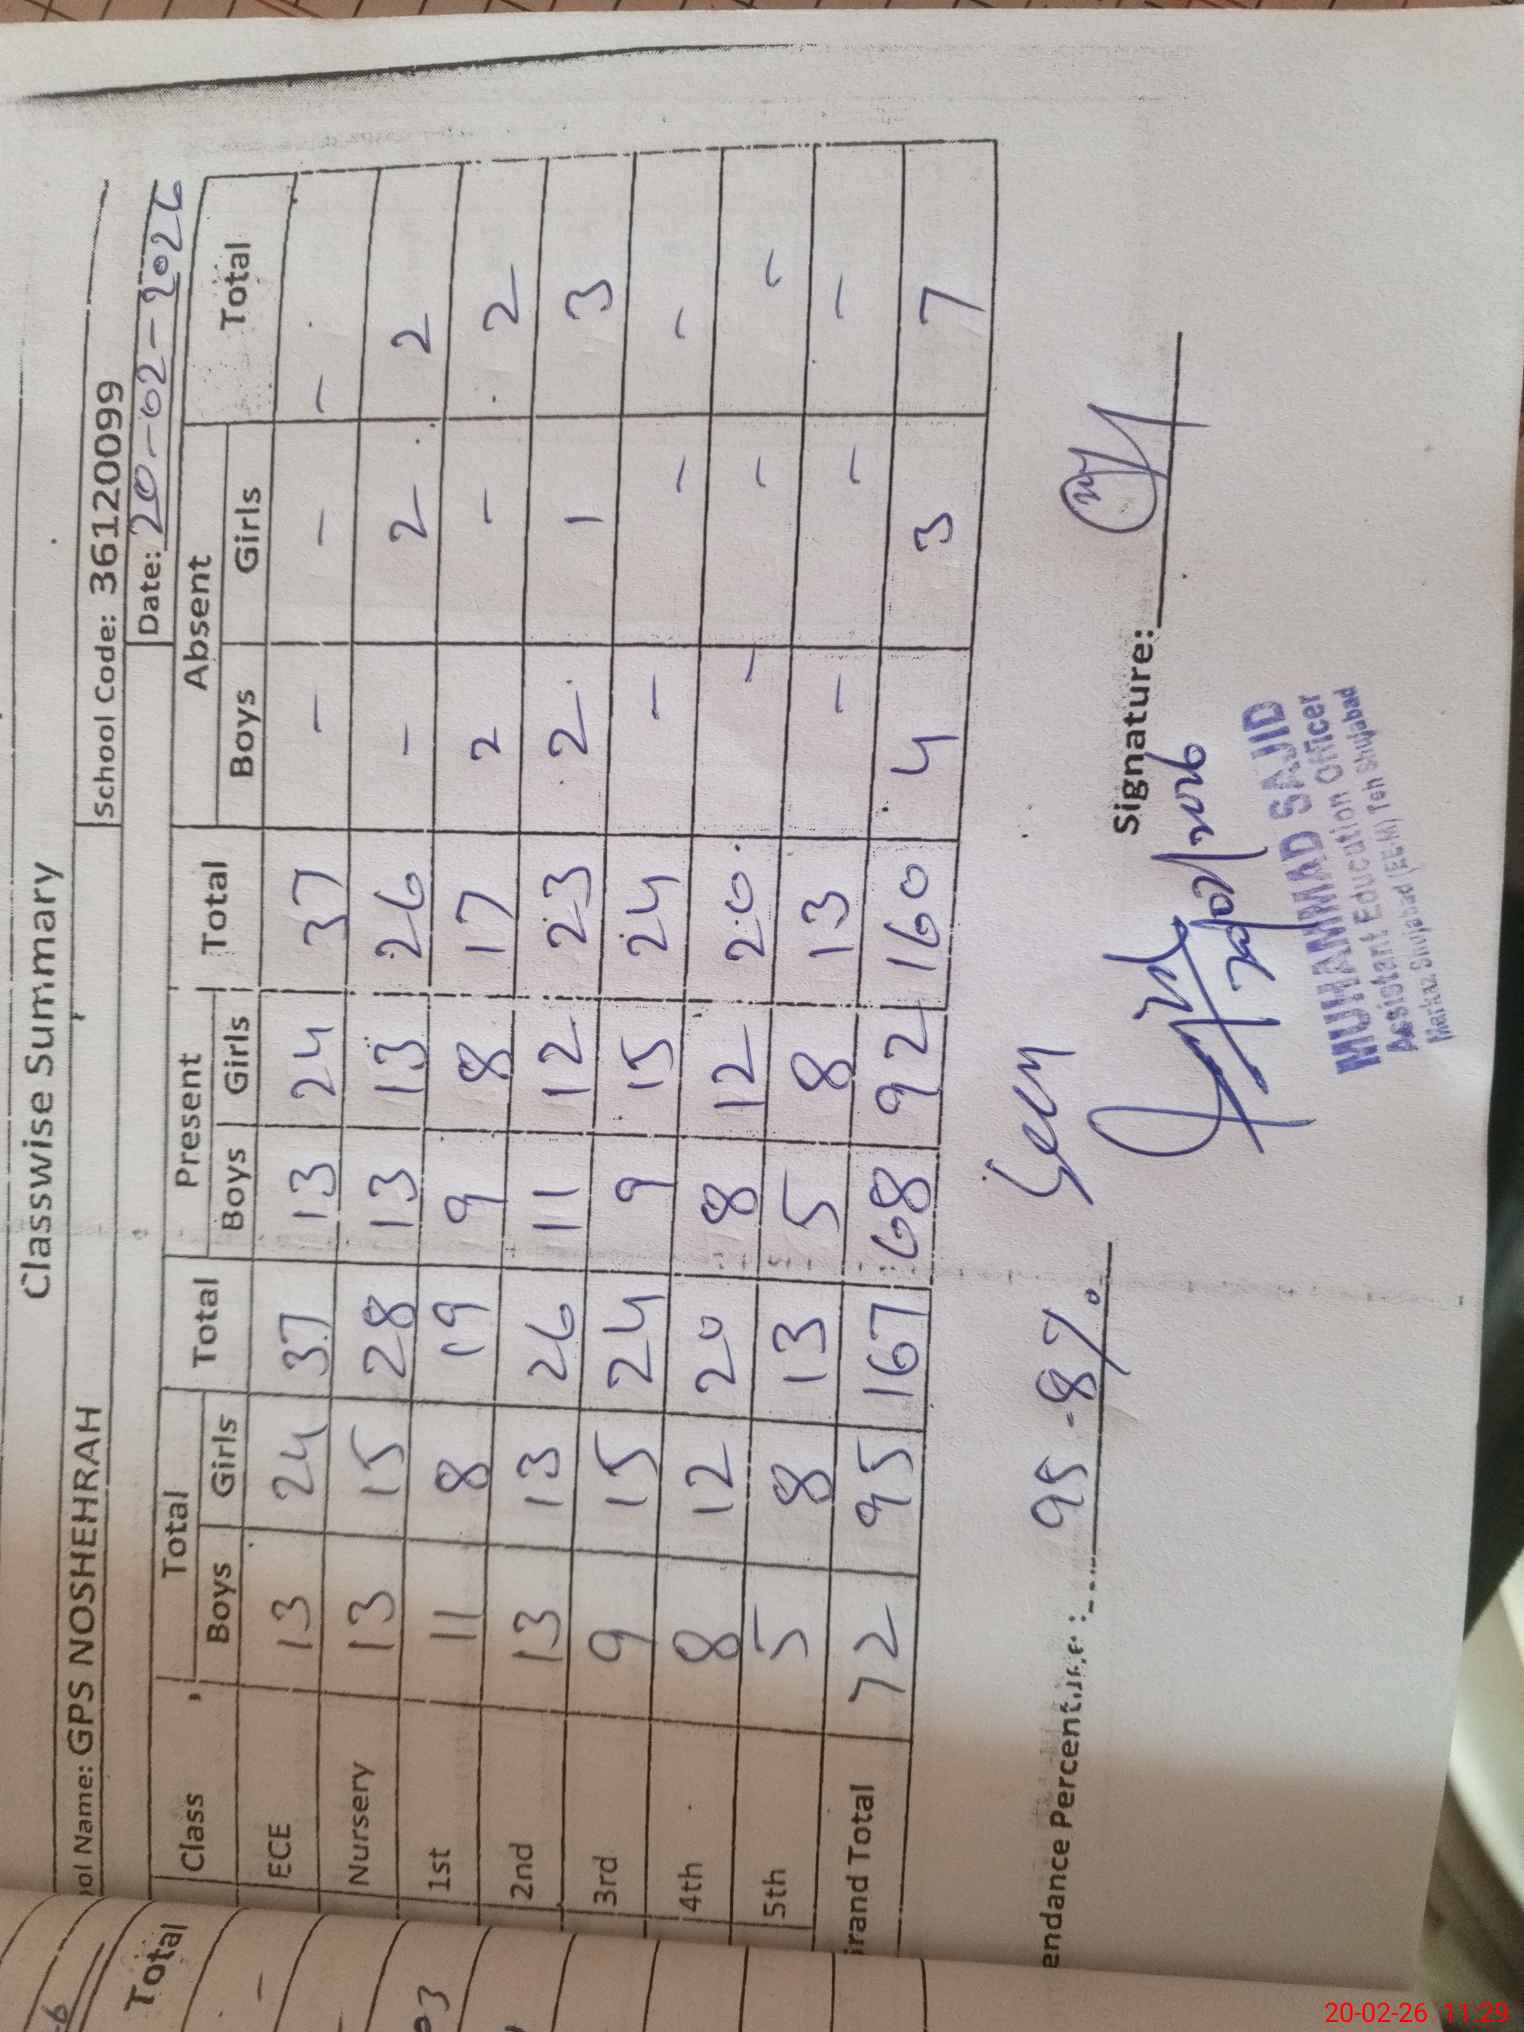 Classwise Summary
ool Name: GPS NOSHEHRAH School Code: 36120099
Date: 20-02-2026
Class Total Total Present Total Absent Total
Boys Girls Boys Girls Boys Girls
ECE 13 24 37 13 24 37 - - -
Nursery 13 15 28 13 13 26 - 2 2
1st 11 8 19 9 8 17 2 - 2
2nd 13 13 26 11 12 23 2 1 3
3rd 9 15 24 9 15 24 - - -
4th 8 12 20 8 12 20 - - -
5th 5 8 13 5 8 13 - - -
Grand Total 72 95 167 68 92 160 4 3 7
endance Percentage: 95.8% Signature:
Seen
20/02/2026
MUHAMMAD SAJID
Assistant Education Officer
Markaz Shujabad (EE-M) Teh Shujabad
Total
-
20-02-26 11:29